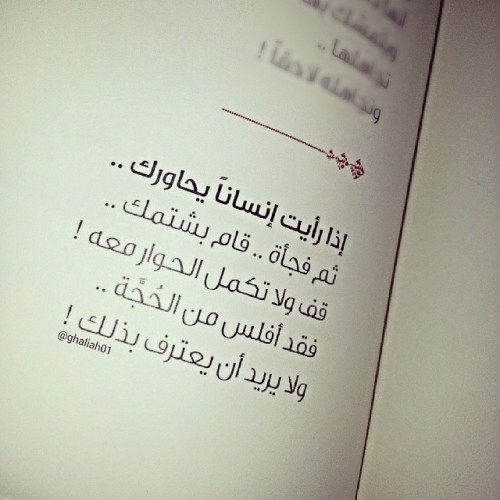 تجاهلها ..
وتجاهله لاحقاً !
إذا رأيت إنساناً يحاورك ..
ثم فجأة .. قام بشتمك ..
قف ولا تكمل الحوار معه !
فقد أفلس من الحُجَّة ..
ولا يريد أن يعترف بذلك !
@ghaliah01